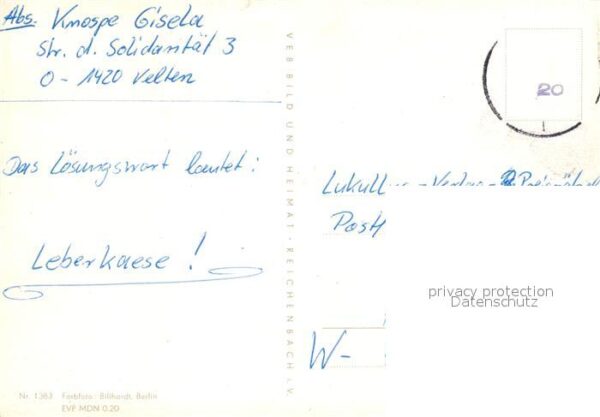 Abs. Knospe Gisela
Str. d. Solidarität 3
O - 1420 Velten
Das Lösungswort lautet:
Leberkaese!
Nr. 1383 Farbfoto: Bildhardt, Berlin
EVP MDN 0.20
VEB BILD UND HEIMAT · REICHENBACH i. V.
20
Verlag -
Post
privacy protection
Datenschutz
W-